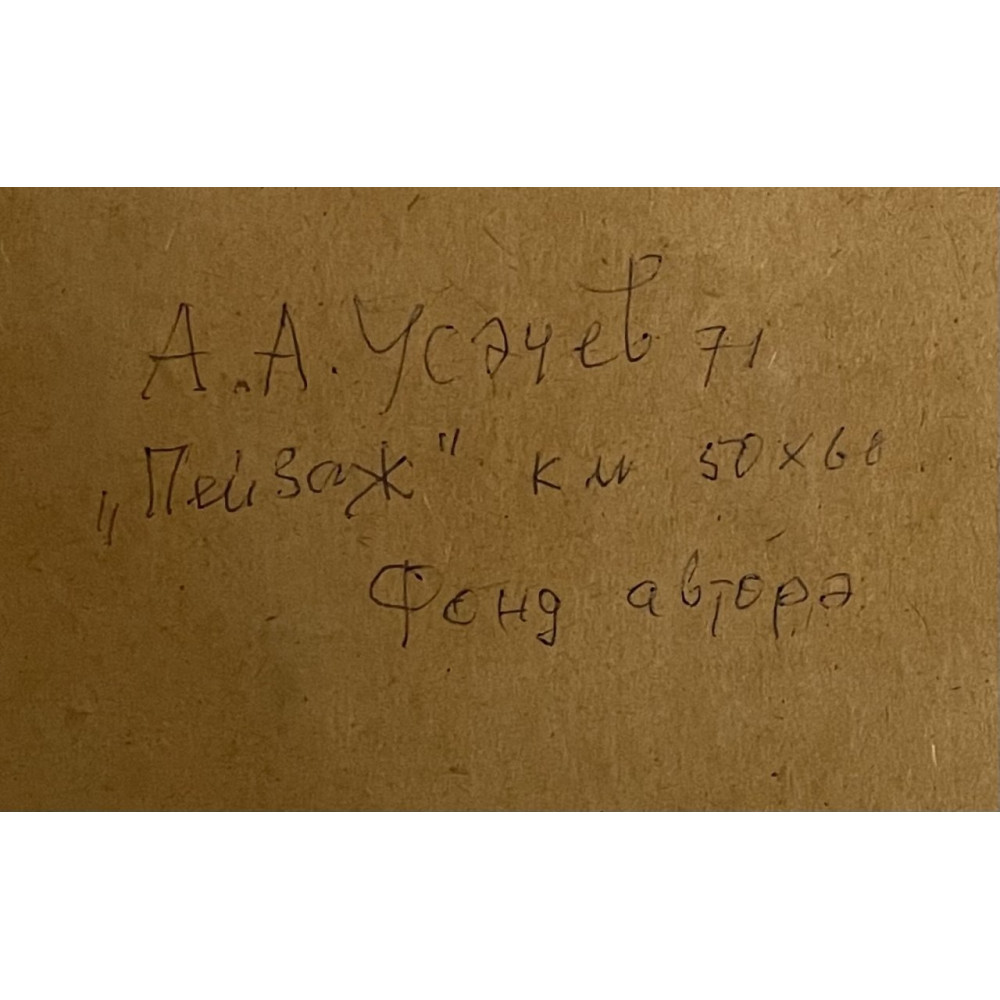 А.А. Усачев 71
„Пейзаж" к м 50х60
Фонд автора